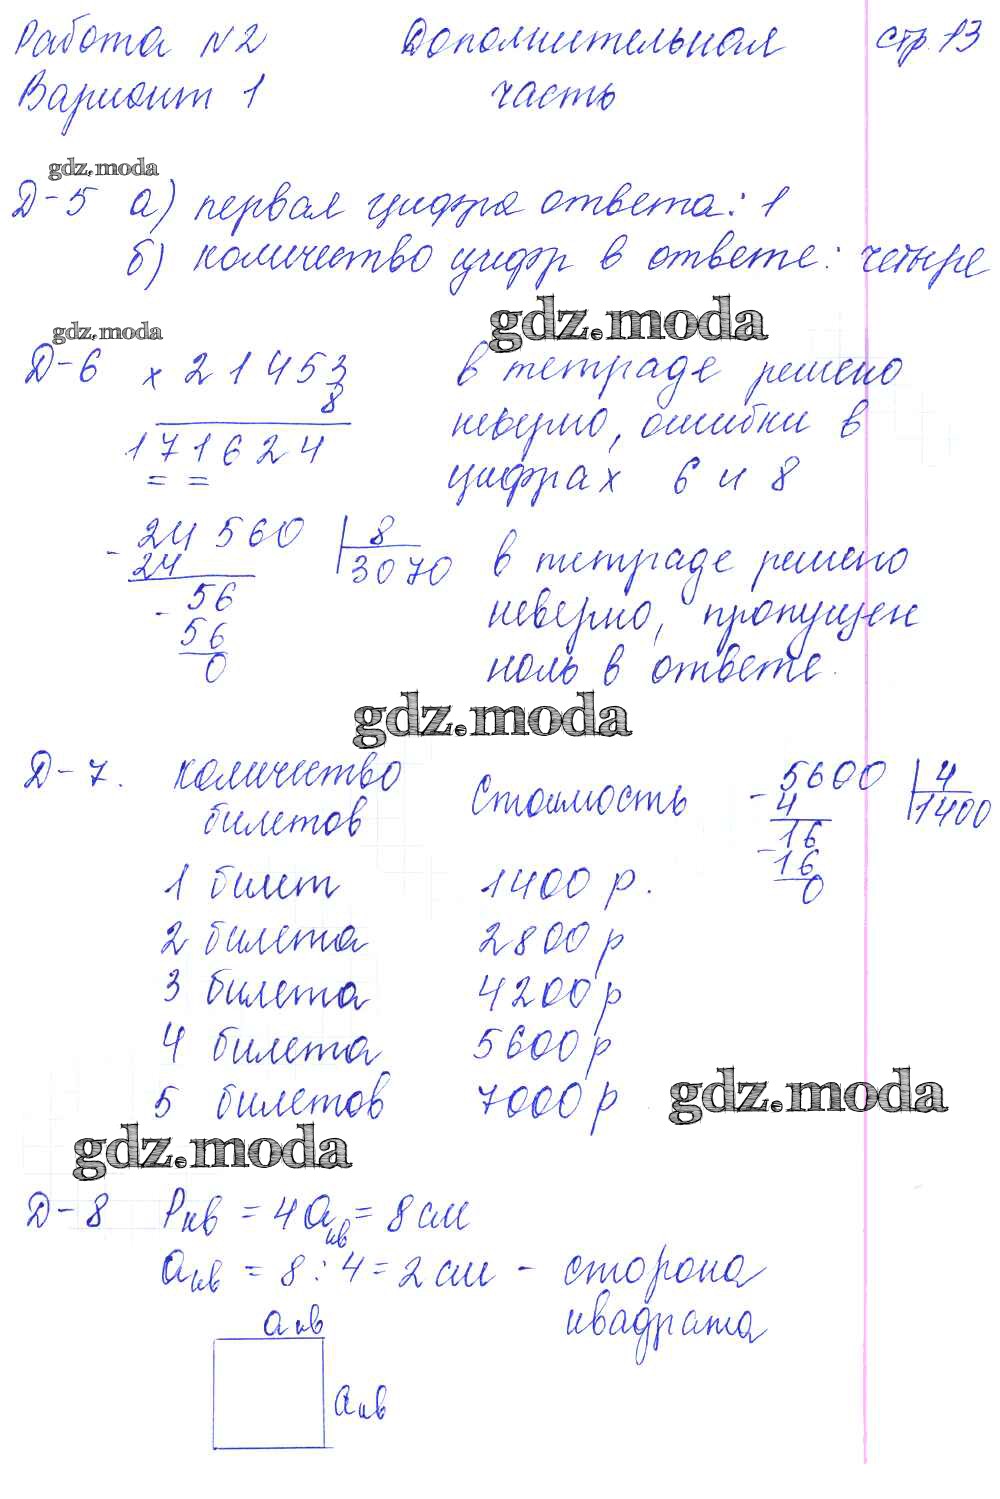 Работа №2 Дополнительная стр. 13
Вариант 1 часть
gdz.moda
Д-5 а) первая цифра ответа: 1
б) количество цифр в ответе: четыре
gdz.moda
gdz.moda
Д-6 × 21453 в тетраде решено
8 неверно, ошибки в
171624 цифрах 6 и 8
= =
- 24560 | 8
24 3070 в тетраде решено
- 56 неверно, пропущен
56 ноль в ответе.
0
gdz.moda
Д-7. количество стоимость - 5600 | 4
билетов 4 1400
- 16
16
0
1 билет 1400 р.
2 билета 2800 р
3 билета 4200 р
4 билета 5600 р
5 билетов 7000 р
gdz.moda
gdz.moda
Д-8 Pкв = 4aкв = 8 см
aкв = 8 : 4 = 2 см - сторона
квадрата
aкв
aкв